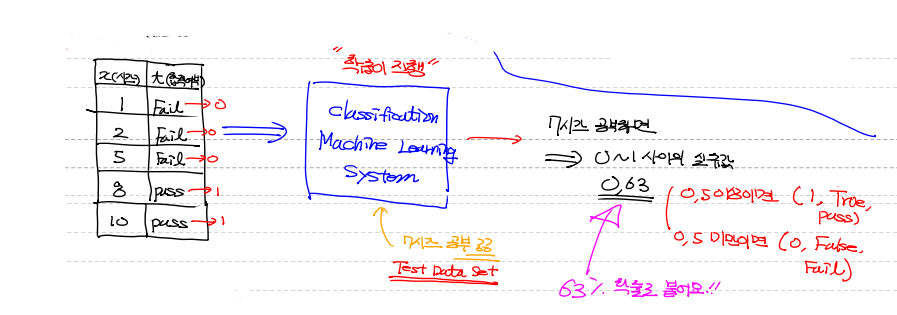 x(시간) t(합격여부)
1 Fail → 0
2 Fail → 0
5 Fail → 0
8 pass → 1
10 pass → 1
"학습이 진행"
Classification
Machine Learning
System
7시간 공부
Test Data Set
7시간 공부하면
⇒ 0~1 사이의 실수값
0,63
0,5이상이면 (1, True,
pass)
0,5 미만이면 (0, False,
Fail)
63% 확률로 붙어요!!